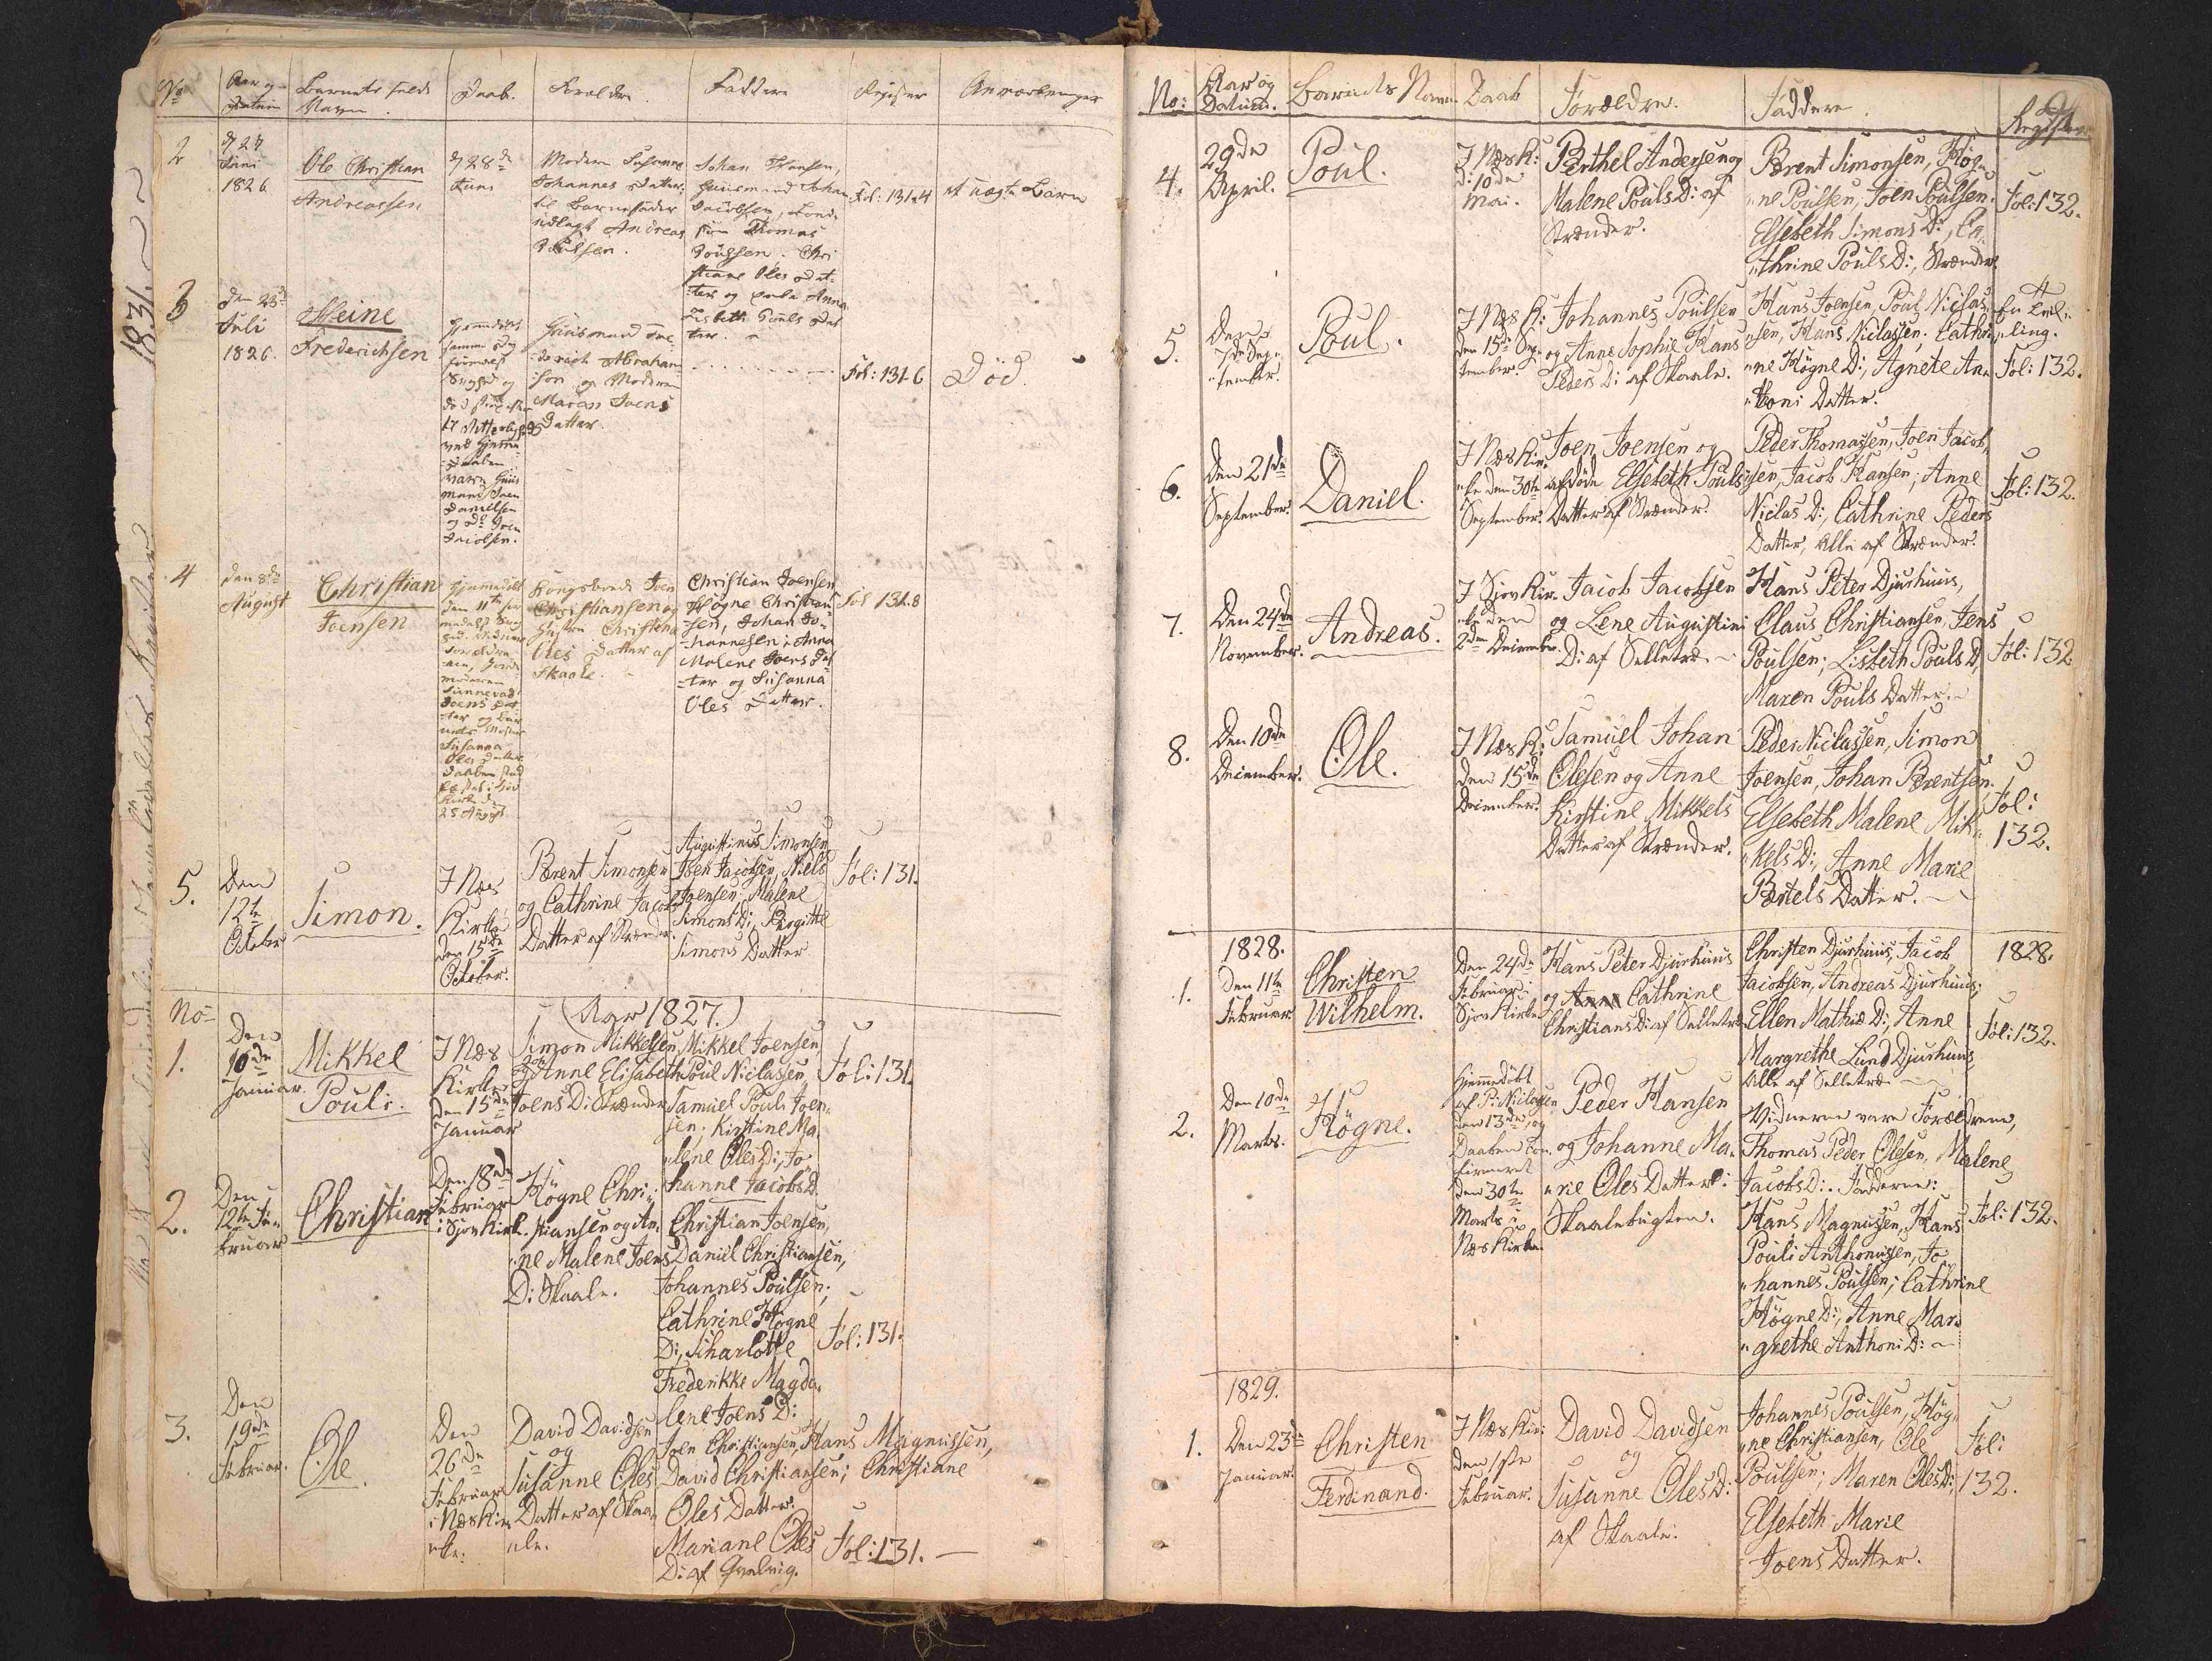 No
Aar og
Datum
Barnets fulde
Navn
Daab.
Forældre
Faddere
Register
Anmærkninger
2
d 27
Juni
1826
Ole Christian
Andreassen
d 28de
Juni
Modern Susanne
Johannes Datter.
til Barnefader
udlagt Andreas
Poulsen.
Johan Hansen,
Huusmand Johan
Jacobsen,
Thomas
Poulsen. Chri
stiane Oles Dat-
ter og Anna
Lisbeth Pouls Dat
ter.
Fol: 131 4
et uægte Barn
3
den 23de
Juli
1826.
Meine
Frederichsen
Hjemmedøbt
samme Dag
formedelst
Svaghed og
død strax efter
ved Hjemme-
Daaben
vare Huus
mand Joen
Danielsen
og Joen
Jacobsen.
Huusmand Fre-
derich Abraham-
sen og Moderen
Maren Joens
Datter.
Fol: 131 6
Død.
4
den 8de
August
Christian
Joensen
Hjemmedøbt
den 11te for
medelst Svag
hed. Vidner
Forældre-
ne, Jorde
moderen
Sunneva
Joens Dat
ter og Bar
nets Moster
Susanna
Oles Datter
Daaben stad
fæstet i
Kirke d
25 August
Kongsbonde Joen
Christiansen og
Hustru Christine
Oles Datter af
Skaale.
Christian Joensen
Høgne Christian-
sen, Johan Jo-
hannesen; Anna
Malene Joens Dat
ter og Susanna
Oles Datter.
Fol 131.8
5.
Den
12te
October
Simon.
I Næs
Kirke
den 15de
October.
Berent Simonsen
og Cathrine Jacobs
Datter af Strænder.
Augustinus Simonsen
Joen Jacobsen, Niels
Joensen, Malene
Simons D:, Birgitte
Simons Datter
Fol: 131.
No
(Aar 1827.)
1.
Den
10de
Januar.
Mikkel
Pouli.
I Næs
Kirke
den 15de
Januar
Simon Mikkelsen
og Anne Elisabeth
Joens D: Strænder
Mikkel Joensen
Poul Niclassen
Samuel Pouli Joen-
sen; Kirstine Ma-
lene Oles D:, Jo
hanne Jacobs D.
Fol: 131.
2.
Den
12te Fe-
bruar
Christian
Den 18de
Februar
i Sjov Kirk.
Høgne Chri-
stiansen og An-
ne Malene Joens
D: Skaale.
Christian Joensen,
Daniel Christiansen,
Johannes Poulsen;
Cathrine Høgne
D:, Scharlotte
Frederikke Magda-
lene Joens D:
Fol: 131.
3.
Den
19de
Februar.
Ole.
Den
26de
Februar
i Næs Kir-
ke.
David Davidsen
og
Susanne Oles
Datter af Skaa-
le.
Joen Christiansen, Hans Magnussen,
David Christiansen; Christiane
Oles Datter.
Mariane Oles
D: af Qvalvig.
Fol: 131.
1831.
No:
Aar og
Datum.
Barnets Navn
Daab
Forældre.
Faddere
Register
4.
29de
April.
Poul.
I Næs K:
d: 10de
Mai.
Berthel Andersen og
Malene Pouls D: af
Strænder.
Berent Simonsen, Høg-
ne Poulsen, Joen Poulsen.
Elsebeth Simons D:, Ca-
thrine Pouls D:, Strænder.
Fol: 132.
5.
Den
7de Sep-
tember.
Poul.
I Næs K:
den 15de Sep-
tember.
Johannes Poulsen
og Anne Sophie Hans
Peders D: af Skaale.
Hans Joensen, Poul Niclas-
sen, Hans Niclassen; Cathri-
ne Høgne D:, Agnete An-
thoni Datter.
En
ling.
Fol: 132.
6.
Den 21de
September.
Daniel.
I Næs Kir-
ke den 30te
September.
Joen Joensen og
afdøde Elsebeth Pouls
Datter af Strænder.
Peder Thomassen, Joen Jacob-
sen, Jacob Hansen; Anne
Niclas D:, Cathrine Peders
Datter, Alle af Strænder.
Fol: 132.
7.
Den 24de
November.
Andreas.
I Sjov Kir-
ke den
2den December.
Jacob Jacobsen
og Lene Augustini
D: af Selletræ.
Hans Peter Djurhuus,
Claus Christiansen, Jens
Poulsen; Lisbeth Pouls D,
Maren Pouls Datter.
Fol: 132
8.
Den 10de
December.
Ole.
I Næs K:
den 15de
December.
Samuel Johan
Olesen og Anne
Kirstine Mikkels
Datter af Strænder.
Peder Niclassen, Simon
Joensen, Johan Berentsen.
Elsebeth Malene Mik-
kels D:, Anne Marie
Bertels Datter.
Fol:
132.
1828.
1828.
1.
Den 11te
Februar.
Christen
Wilhelm.
Den 24de
Februar i
Sjov Kirke
Hans Peter Djurhuus
og Anne Cathrine
Christians D: af Selletræ
Christen Djurhuus, Jacob
Jacobsen, Andreas Djurhuus;
Ellen Mathiæ D:, Anne
Margrethe Lund Djurhuus,
Alle af Selletræ
Fol: 132.
2.
Den 10de
Marts.
Høgne.
Hjemmedøbt
af P: Niclasen
den 13de, og
Daaben Con-
firmeret
den 30te
Marts i
Næs Kirke.
Peder Hansen
og Johanne Ma-
rie Oles Datter i
Skaalebugten.
Vidnerne vare Forældrene,
Thomas Peder Olesen, Malene
Jacobs D:. Fadderne:
Hans Magnussen, Hans
Pouli Anthonisen, Jo-
hannes Poulsen; Cathrine
Høgne D:, Anne Mar-
grethe Anthoni D:
Fol: 132.
1829.
1.
Den 23de
Januar.
Christen
Ferdinand.
I Næs Kir:
den 1ste
Februar.
David Davidsen
og
Susanne Oles D:
af Skaale.
Johannes Poulsen, Høg-
ne Christiansen, Ole
Poulsen; Maren Oles D:
Elsebeth Marie
Joens Datter.
Fol:
132.